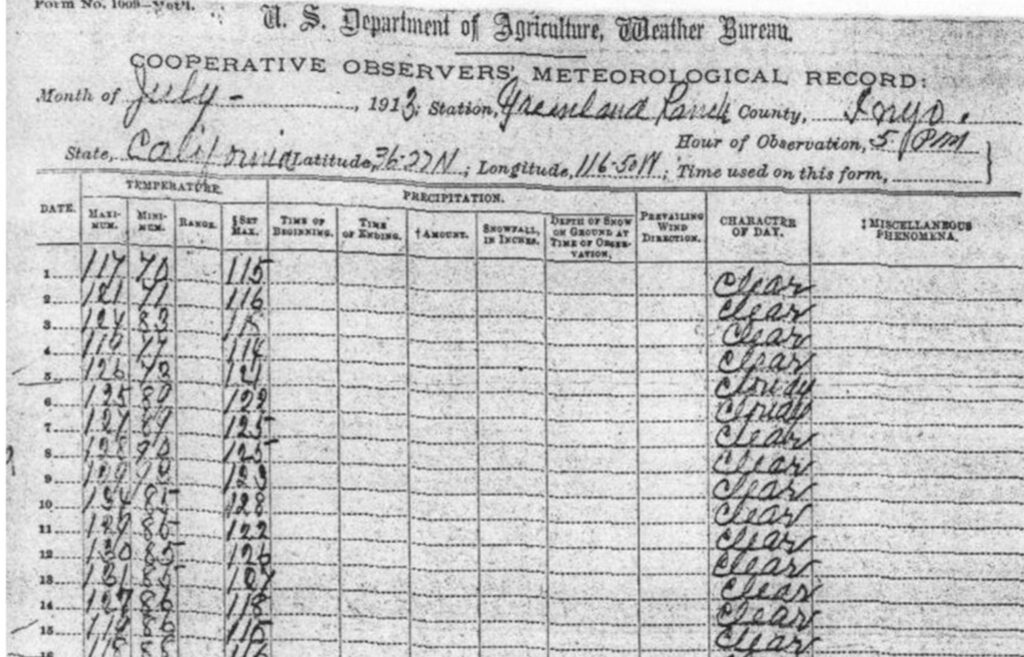 Form No. 1009—Met'l.
U. S. Department of Agriculture, Weather Bureau.
COOPERATIVE OBSERVERS' METEOROLOGICAL RECORD:
Month of July - , 1913; Station, Greenland Ranch County, Inyo.
Hour of Observation, 5 PM
State, California Latitude, 36-27N ; Longitude, 116-50W ; Time used on this form,
TEMPERATURE. PRECIPITATION.
DATE. MAXI-MUM. MINI-MUM. RANGE. §SET MAX. TIME OF BEGINNING. TIME OF ENDING. †AMOUNT. SNOWFALL, IN INCHES. DEPTH OF SNOW ON GROUND AT TIME OF OBSER-VATION. PREVAILING WIND DIRECTION. CHARACTER OF DAY. ‡MISCELLANEOUS PHENOMENA.
1 117 70 115 Clear
2 121 71 116 Clear
3 124 83 Clear
4 119 77 114 Clear
5 126 Cloudy
6 125 80 122 Cloudy
7 127 125 Clear
8 128 125 Clear
9 129 123 Clear
10 134 85 128 Clear
11 129 122 Clear
12 130 85 126 Clear
13 131 127 Clear
14 127 86 118 Clear
15 86 115 Clear
16